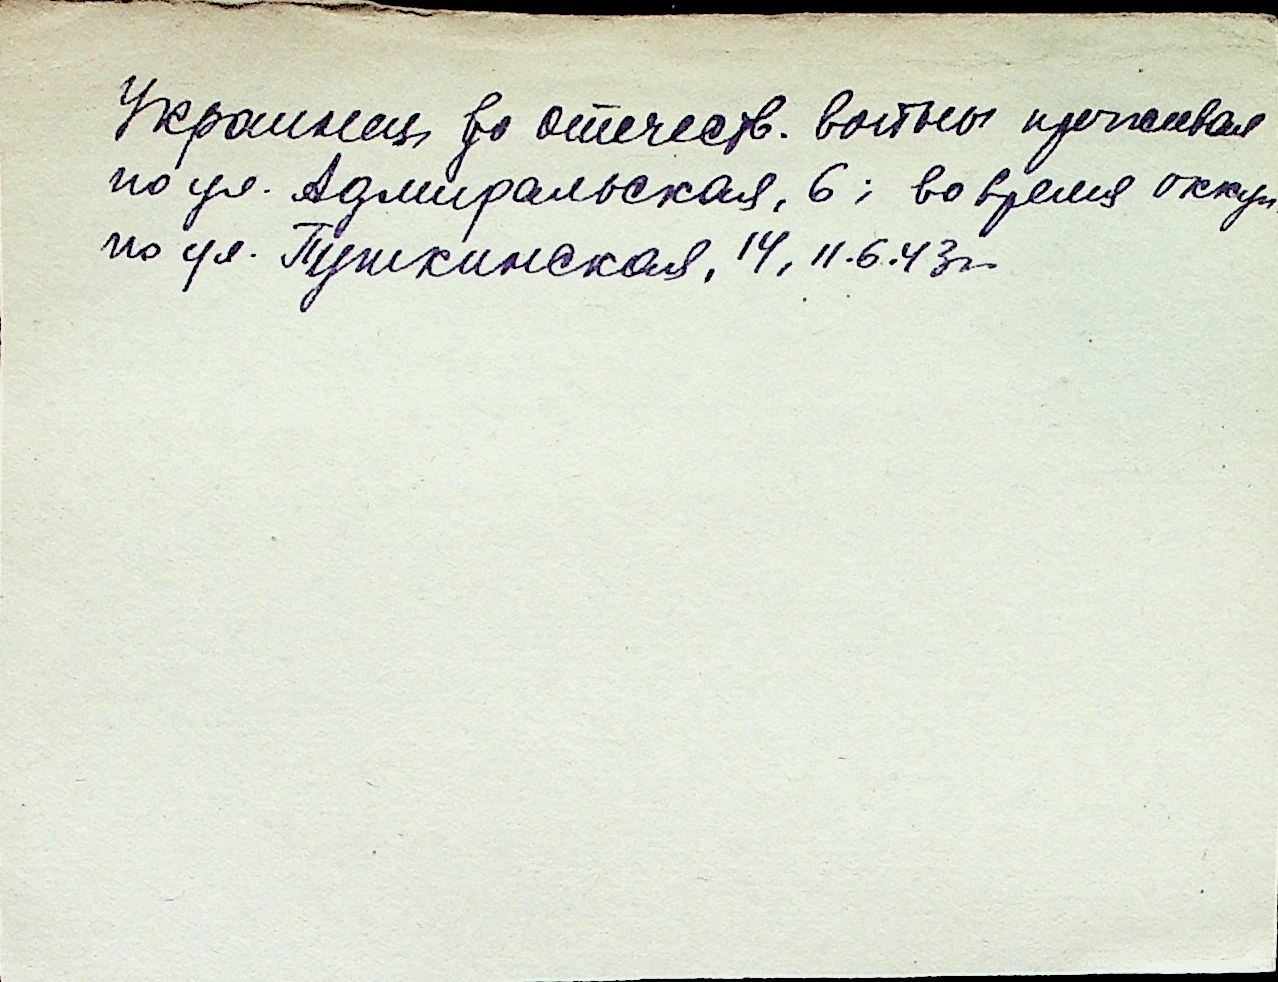 Украинец до отечеств. войны проживал
по ул. Адмиральская, 6; во время оккуп.
по ул. Пушкинская, 14, 11.6.43г.